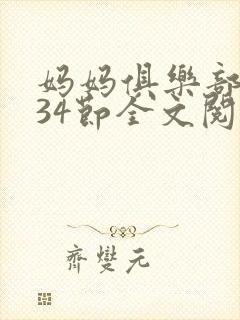 妈妈俱樂部
34節全文閱
齊燮元